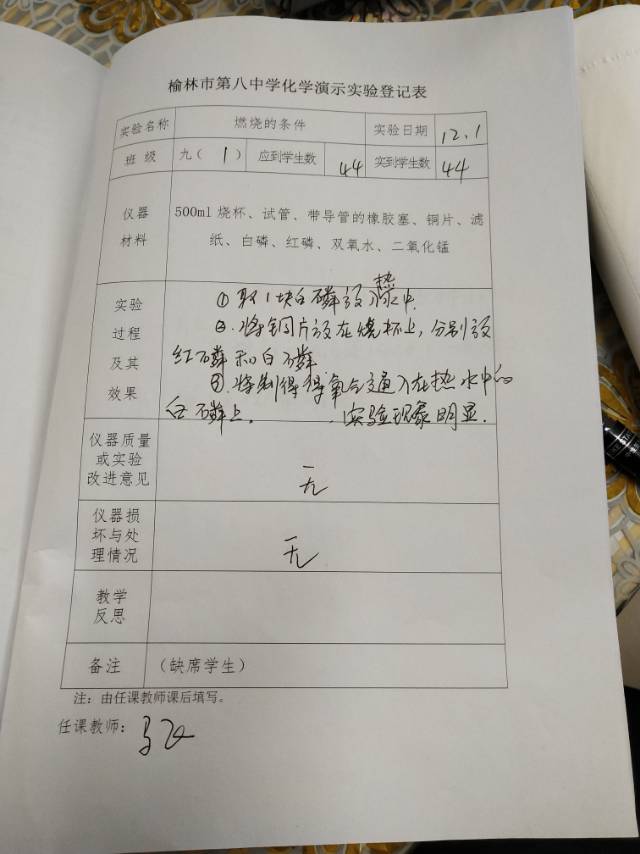 榆林市第八中学化学演示实验登记表
实验名称 燃烧的条件 实验日期 12.1
班 级 九( 1 ) 应到学生数 44 实到学生数 44
仪器
材料
500ml 烧杯、试管、带导管的橡胶塞、铜片、滤
纸、白磷、红磷、双氧水、二氧化锰
实验
过程
及其
效果
①取1块白磷放热水中
②.将铜片放在烧杯上,分别放
红磷和白磷
③.将制得得氧气通入在热水中的
白磷上. 实验现象明显.
仪器质量
或实验
改进意见
无
仪器损
坏与处
理情况
无
教学
反思
备注 (缺席学生)
注:由任课教师课后填写。
任课教师: